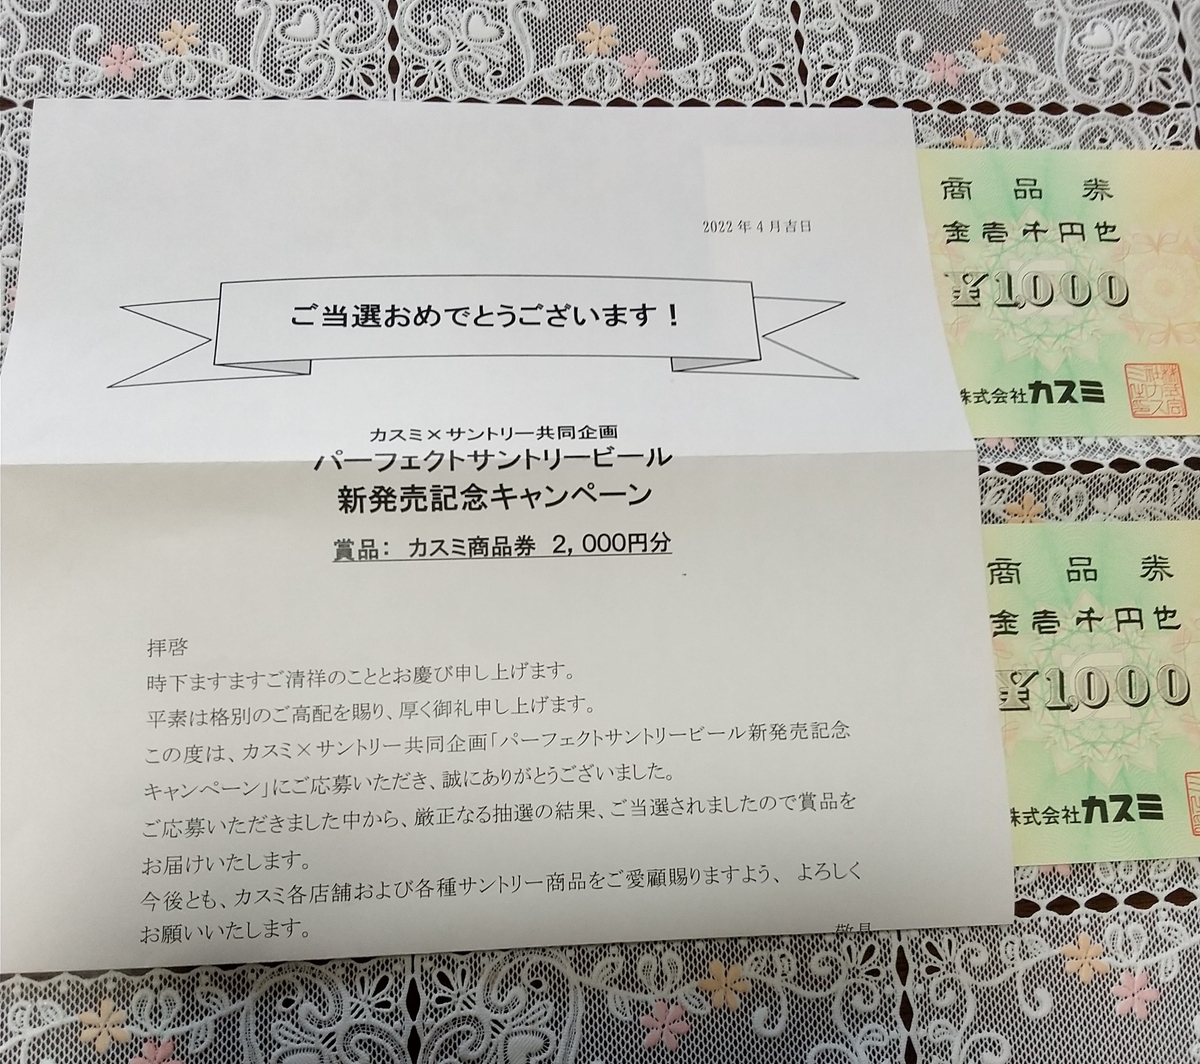 2022年4月吉日
ご当選おめでとうございます！
カスミ×サントリー共同企画
パーフェクトサントリービール
新発売記念キャンペーン
賞品： カスミ商品券 2，000円分
拝啓
時下ますますご清祥のこととお慶び申し上げます。
平素は格別のご高配を賜り、厚く御礼申し上げます。
この度は、カスミ×サントリー共同企画「パーフェクトサントリービール新発売記念
キャンペーン」にご応募いただき、誠にありがとうございました。
ご応募いただきました中から、厳正なる抽選の結果、ご当選されましたので賞品を
お届けいたします。
今後とも、カスミ各店舗および各種サントリー商品をご愛顧賜りますよう、 よろしく
お願いいたします。
敬具
商品券
金壱千円也
¥1,000
株式会社カスミ
商品券
金壱千円也
¥1,000
株式会社カスミ